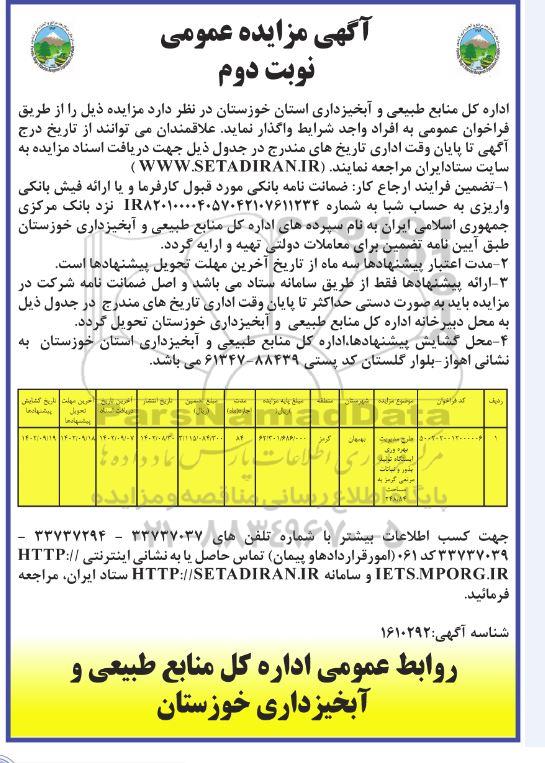 آگهی مزایده عمومی
نوبت دوم
اداره کل منابع طبیعی و آبخیزداری استان خوزستان در نظر دارد مزایده ذیل را از طریق
فراخوان عمومی به افراد واجد شرایط واگذار نماید. علاقمندان می توانند از تاریخ درج
آگهی تا پایان وقت اداری تاریخ های مندرج در جدول ذیل جهت دریافت اسناد مزایده به
سایت ستادایران مراجعه نمایند. (WWW.SETADIRAN.IR )
۱-تضمین فرایند ارجاع کار: ضمانت نامه بانکی مورد قبول کارفرما و یا ارائه فیش بانکی
واریزی به حساب شبا به شماره IR۸۲۰۱۰۰۰۰۴۰۵۷۰۴۲۱۰۷۶۱۱۲۳۴ نزد بانک مرکزی
جمهوری اسلامی ایران به نام سپرده های اداره کل منابع طبیعی و آبخیزداری خوزستان
طبق آیین نامه تضمین برای معاملات دولتی تهیه و ارایه گردد.
۲-مدت اعتبار پیشنهادها سه ماه از تاریخ آخرین مهلت تحویل پیشنهادها است.
۳-ارائه پیشنهادها فقط از طریق سامانه ستاد می باشد و اصل ضمانت نامه شرکت در
مزایده باید به صورت دستی حداکثر تا پایان وقت اداری تاریخ های مندرج در جدول ذیل
به محل دبیرخانه اداره کل منابع طبیعی و آبخیزداری خوزستان تحویل گردد.
۴-محل گشایش پیشنهادها،اداره کل منابع طبیعی و آبخیزداری استان خوزستان به
نشانی اهواز-بلوار گلستان کد پستی ۸۸۴۳۹-۶۱۳۴۷ می باشد.
ردیف کد فراخوان موضوع مزایده شهرستان منطقه مبلغ پایه مزایده (ریال) مدت اجاره(ماه) مبلغ تضمین (ریال) تاریخ انتشار آخرین تاریخ دریافت اسناد آخرین مهلت تحویل پیشنهادها تاریخ گشایش پیشنهادها
۱ طرح مدیریت بهره وری ایستگاه تولید بذور و نباتات مرتعی گرمز به مساحت بهبهان گرمز ۸۴ ۱۴۰۲/۰۹/۰۷ ۱۴۰۲/۰۹/۱۸ ۱۴۰۲/۰۹/۱۹
ParsNamadData
پایگاه اطلاع رسانی مناقصه و مزایده
جهت کسب اطلاعات بیشتر با شماره تلفن های ۳۳۷۳۷۰۳۷ - ۳۳۷۳۷۲۹۴ -
۳۳۷۳۷۰۳۹ کد ۰۶۱ (امورقراردادهاو پیمان) تماس حاصل یا به نشانی اینترنتی HTTP://
IETS.MPORG.IR و سامانه HTTP://SETADIRAN.IR ستاد ایران، مراجعه
فرمائید.
شناسه آگهی:۱۶۱۰۲۹۲
روابط عمومی اداره کل منابع طبیعی و
آبخیزداری خوزستان